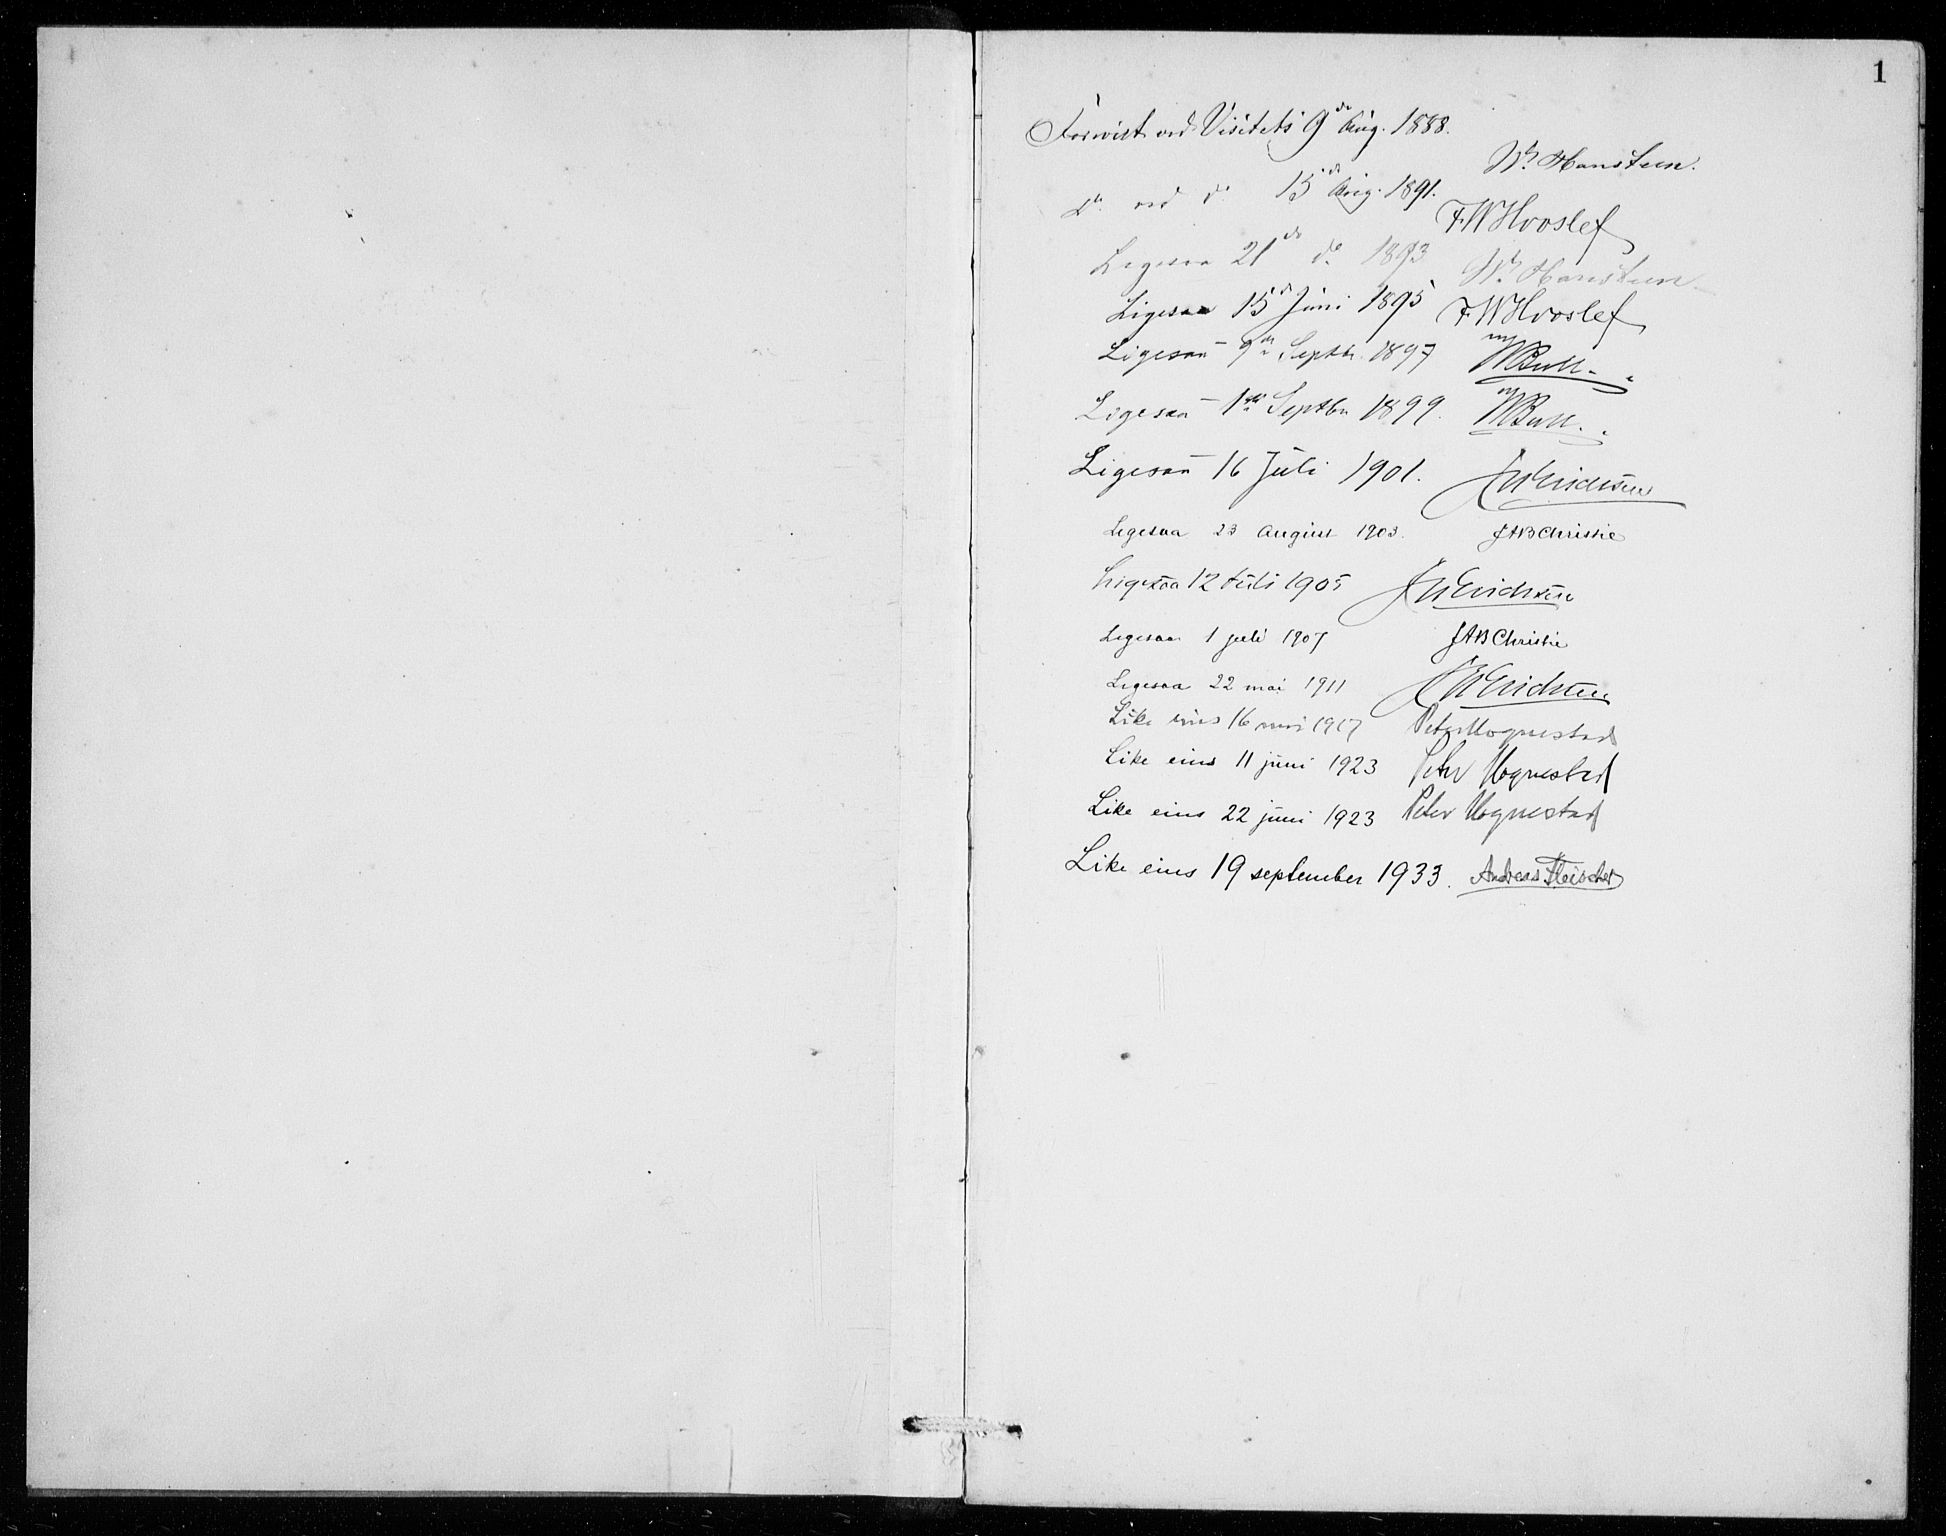 1
Forevist ved Visitats 9de Aug. 1888.
Wm Hansteen.
Do. ved do 15de Aug. 1891.
F.W Hvoslef
Ligesaa 21de do. 1893 Wm Hansteen
Ligesaa 15de Juni 1895 F.W Hvoslef
Ligesaa 9de Septbr. 1897 WBull.
Ligesaa 1ste Septbr 1899. WBull.
Ligesaa 16 Juli 1901. Erichsen
Ligesaa 23 august 1903. JABChristie
Ligesaa 12 Juli 1905 Erichsen
Ligesaa 1 juli 1907 JABChristie
Ligesaa 22 mai 1911 Erichsen
Like eins 16 mai 1917 Peter Hognestad
Like eins 11 juni 1923 Peter Hognestad
Like eins 22 juni 1923 Peter Hognestad
Like eins 19 september 1933. Andreas Fleischer